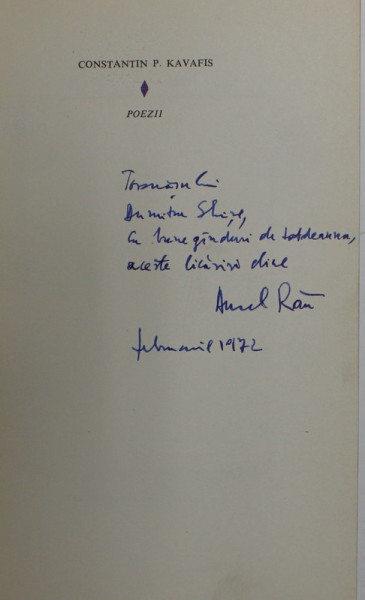 CONSTANTIN P. KAVAFIS
POEZII
Tovarășului
Dumitru
cu bune gînduri de totdeauna,
aceste licăriri
Aurel Rău
februarie 1972